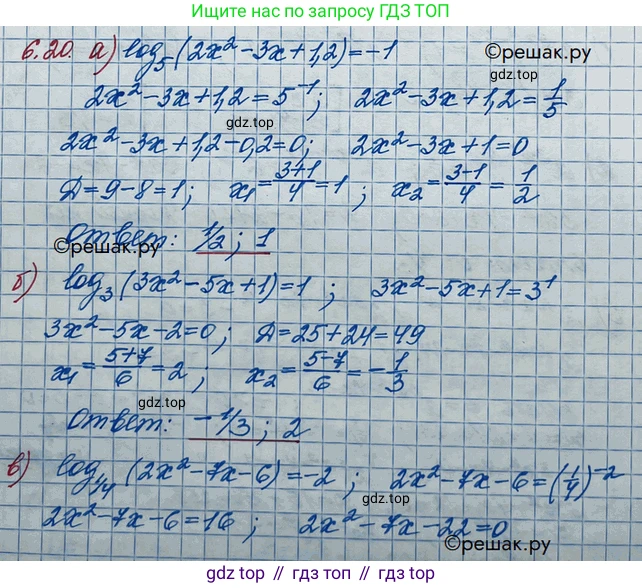 Ищите нас по запросу ГДЗ ТОП
6.20. а) log₅(2x²-3x+1,2)=-1
©reшак.ру
2x²-3x+1,2=5⁻¹; 2x²-3x+1,2=1/5
гдз.top
2x²-3x+1,2-0,2=0; 2x²-3x+1=0
Д=9-8=1; x₁=(3+1)/4=1; x₂=(3-1)/4=1/2
Ответ: 1/2; 1
©решак.ру
б) log₃(3x²-5x+1)=1; 3x²-5x+1=3¹
3x²-5x-2=0; Д=25+24=49
x₁=(5+7)/6=2; x₂=(5-7)/6=-1/3
гдз.top
Ответ: -1/3; 2
в) log₁/₄(2x²-7x-6)=-2; 2x²-7x-6=(1/4)⁻²
гдз.top
2x²-7x-6=16; 2x²-7x-22=0
©решак.ру
gdz.top // гдз.топ // gdz.top // гдз.топ